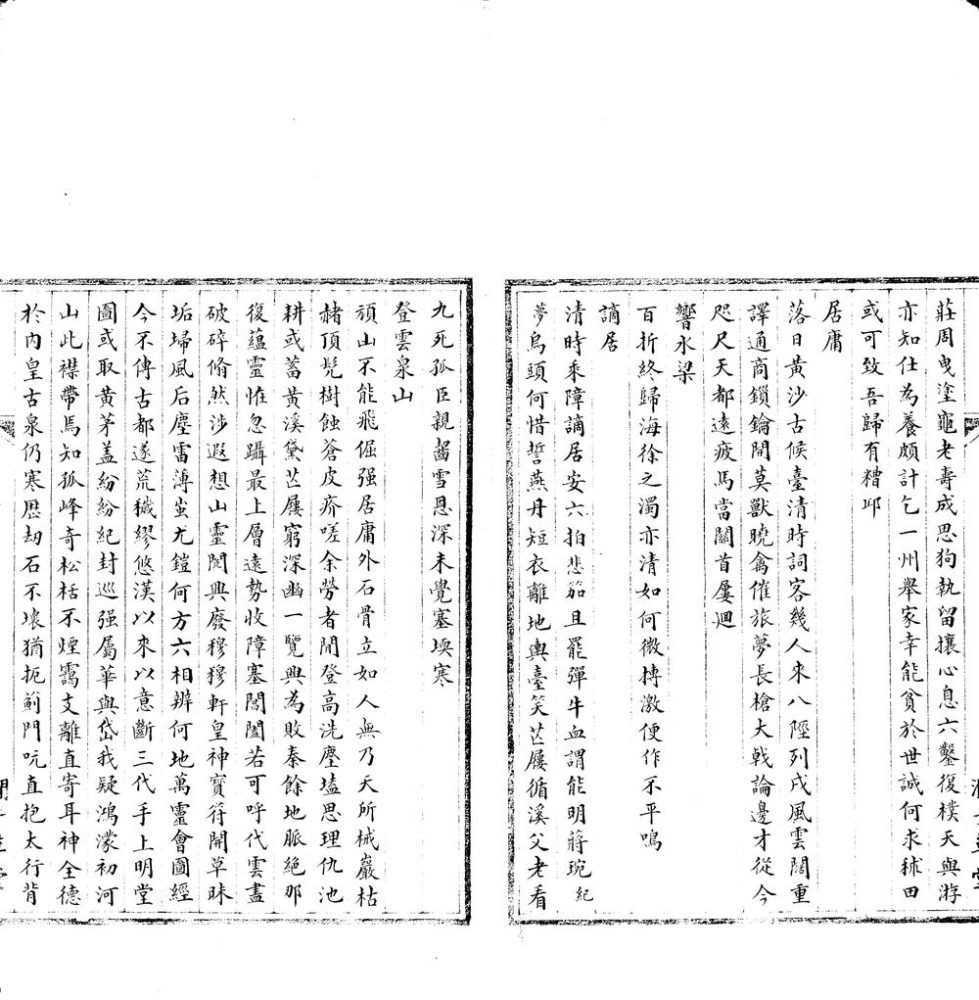 莊周曳塗龜老壽成思狗執留攘心息六鑿復樸天與游
亦知仕為養頗計乞一州舉家幸能貧於世誠何求秫田
或可致吾歸有糟邱
居庸
落日黃沙古候臺清時詞客幾人來八陘列戍風雲闊重
譯通商鎖鑰開莫獸曉禽催旅夢長槍大戟論邊才從今
咫尺天都遠疲馬當關首屢迴
響水梁
百折終歸海徐之濁亦清如何微摶激便作不平鳴
謫居
清時來障謫居安六拍悲笳且罷彈牛血謂能明蔣琬紀
夢烏頭何惜誓燕丹短衣離地輿臺笑芒屩循溪父老看
九死孤臣親齧雪恩深未覺塞堧寒
登雲泉山
頑山不能飛倔强居庸外石骨立如人無乃天所械巖枯
赭頂髡樹蝕蒼皮疥嗟余勞者閒登高洗塵壒思理仇池
耕或蓄黃溪黛芒屩窮深幽一覽興為敗秦餘地脈絶那
復蘊靈怪忽躡最上層遠勢收障塞閶闔若可呼代雲晝
破碎翛然涉遐想山靈閱興廢穆穆軒皇神寶符開草昧
垢埽風后塵雷薄蚩尤鎧何方六相辨何地萬靈會圖經
今不傳古都遂荒穢繆悠漢以來以意斷三代手上明堂
圖或取黃茅蓋紛紛紀封巡强屬華與岱我疑鴻濛初河
山此襟帶焉知孤峰奇松栝不煙靄支離直寄耳神全德
於內皇古泉仍寒歷劫石不壞猶扼薊門吭直抱太行背